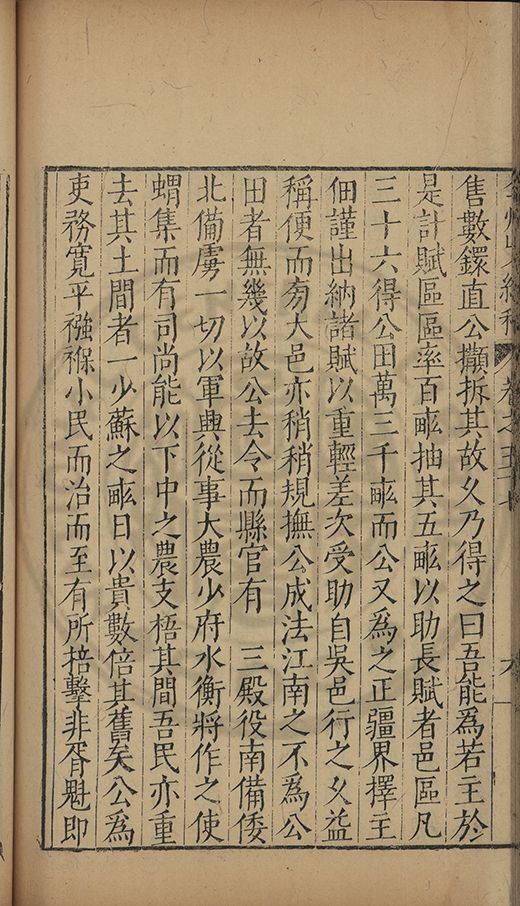 售數鐶直公攧拆其故久乃得之曰吾能爲若主於
是計賦區區率百畝抽其五畝以助長賦者邑區凡
三十六得公田萬三千畝而公又爲之正疆界擇主
佃謹出納諸賦以重輕差次受助自吳邑行之久益
稱便而旁大邑亦稍稍規撫公成法江南之不爲公
田者無幾以故公去令而縣官有 三殿役南備倭
北備虜一切以軍興從事大農少府水衡將作之使
蝟集而有司尚能以下中之農支梧其間吾民亦重
去其土間者一少蘇之畝日以貴數倍其舊矣公爲
吏務寬平襁褓小民而治而至有所掊擊非胥魁即